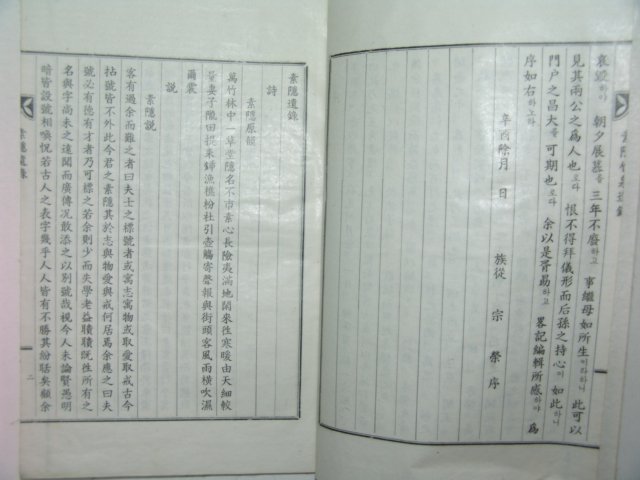 哀毁하야 朝夕展墓를 三年不廢하고 事繼母如所生이라하니 此可以
見其兩公之爲人也로다 恨不得拜儀形而后孫之持心이 如此하니
門戶之昌大를 可期也로다 余以是胥勗하고 畧記編輯所感하야 爲
序如右하노라
辛酉除月 日 族從 宗榮 序
素隱遺錄
詩
素隱原韻
萬竹林中一草堂隱名不市素心長險夷滿地閑來往寒暖由天細較
量妻子隴田提耒鍤漁樵枌社引壺觴寄聲報與街頭客風雨橫吹濕
爾裳
説
素隱説
客有過余而難之者曰夫士之標號者或寓志寓物或取愛取戒古今
拈號皆不外此今君之素隱其於志與物愛與戒何居焉余應之曰夫
號必有德有才者乃可標之若余則少而失學老益聵聵既往所有之
名與字尚未之遠聞而廣傳况敢添之以別號哉視今人未論賢愚明
暗皆設號相喚怳若古人之表字幾乎人人皆有不勝其紛聒矣顧余
素隱遺錄
二